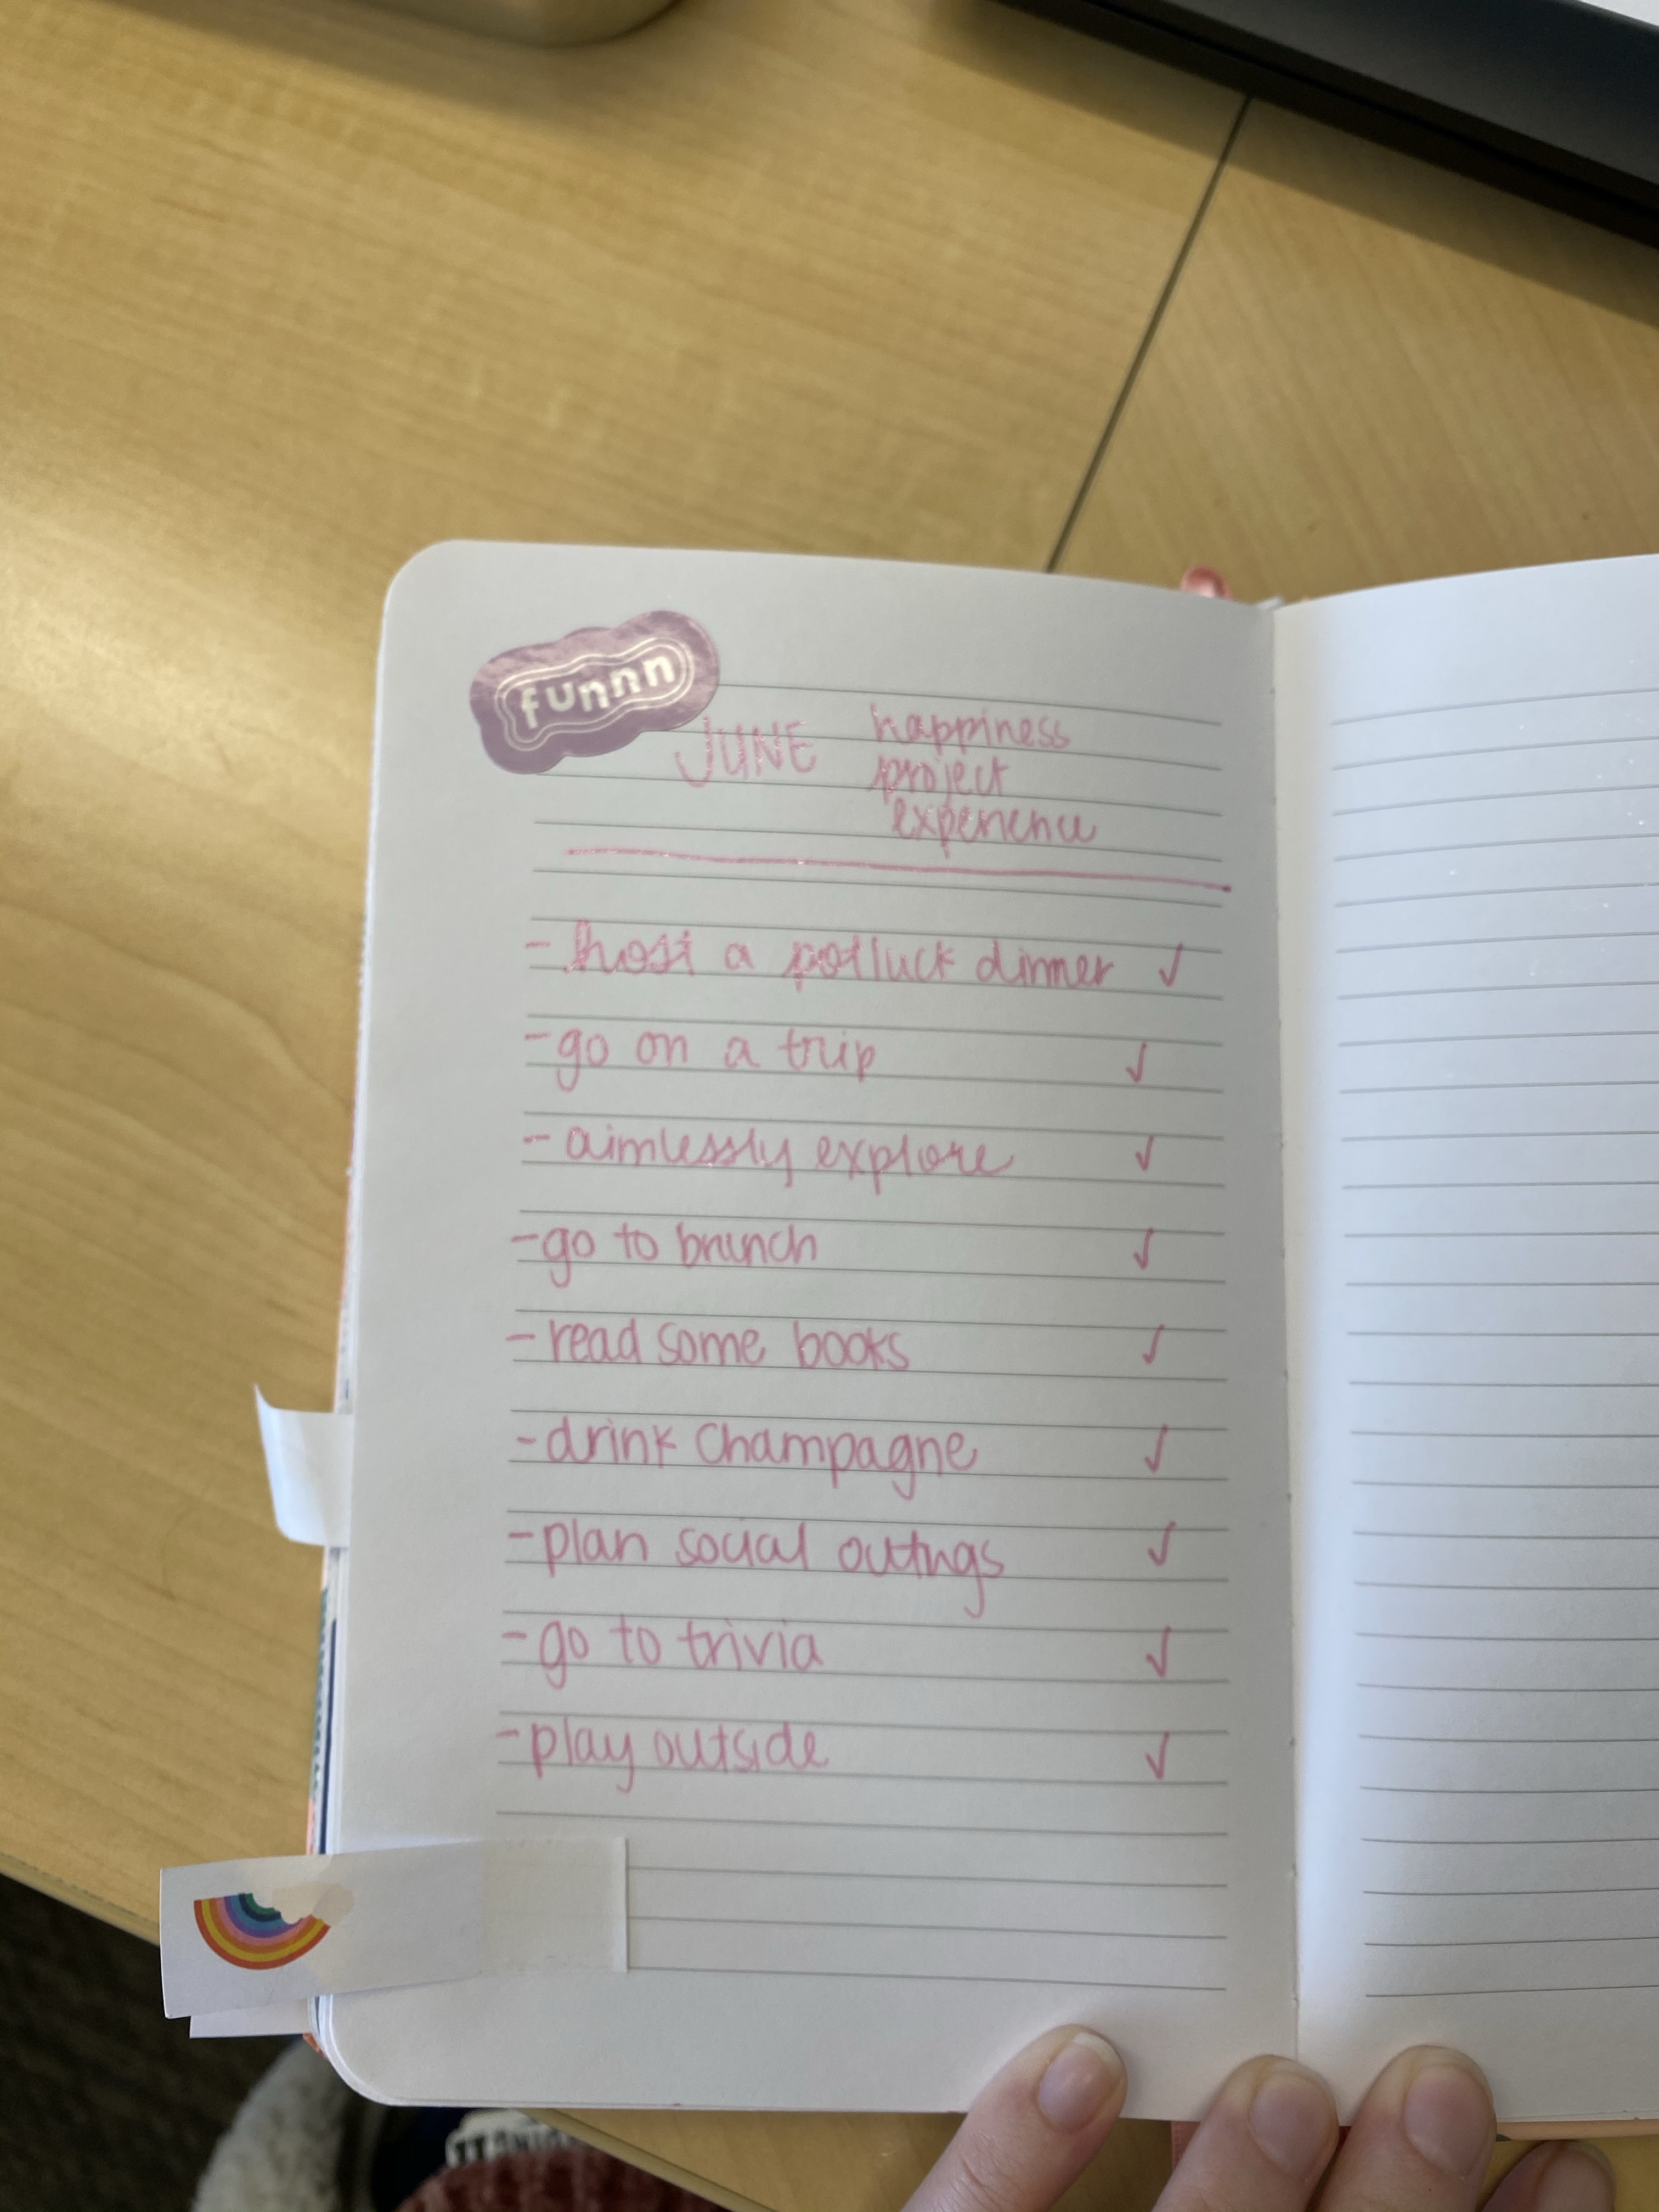 funnn
JUNE happiness
project
experience
- host a potluck dinner ✓
- go on a trip ✓
- aimlessly explore ✓
- go to brunch ✓
- read some books ✓
- drink champagne ✓
- plan social outings ✓
- go to trivia ✓
- play outside ✓